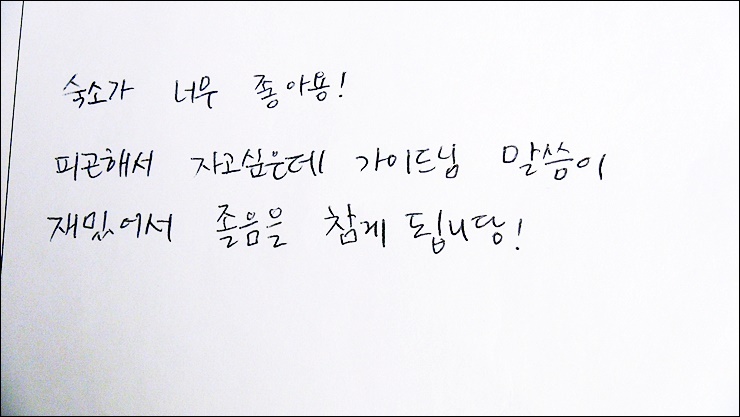 숙소가 너무 좋아용!
피곤해서 자고싶은데 가이드님 말씀이
재밌어서 졸음을 참게 됩니당!